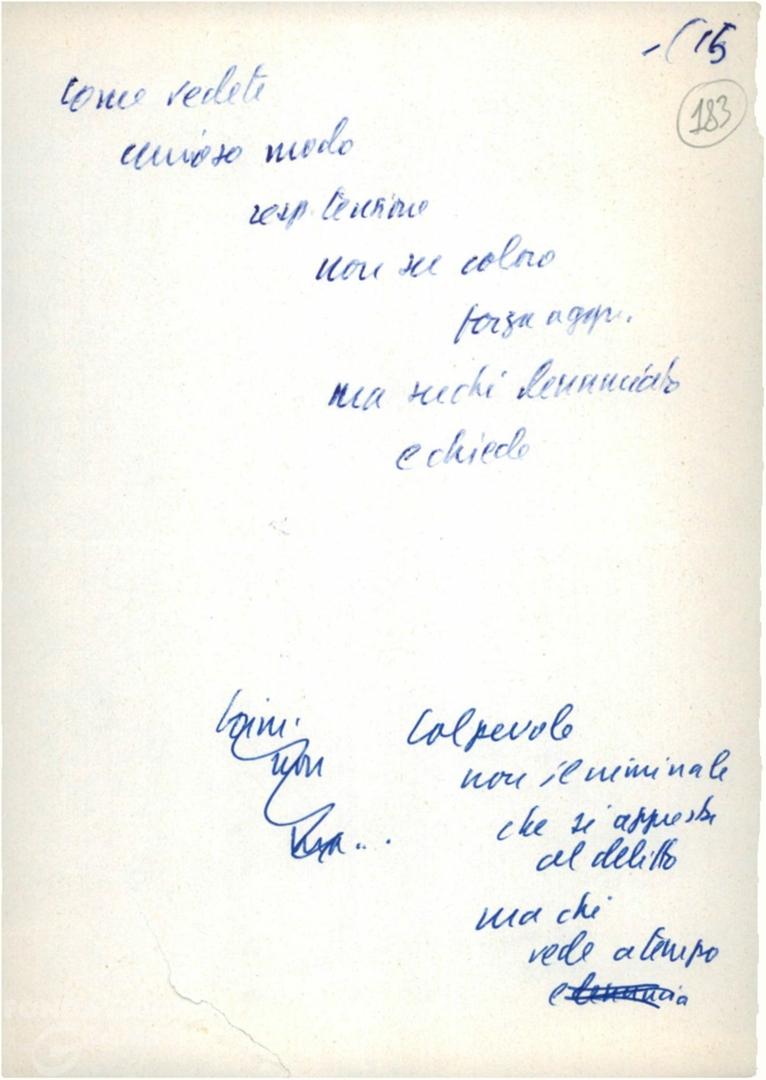 -(15
183
come vedete
curioso modo
resp. tensione
non su coloro
forza aggr.
ma su chi denunciato
e chiede
non
ma...
Colpevole
non il criminale
che si appresta
al delitto
ma chi
vede a tempo
e denuncia